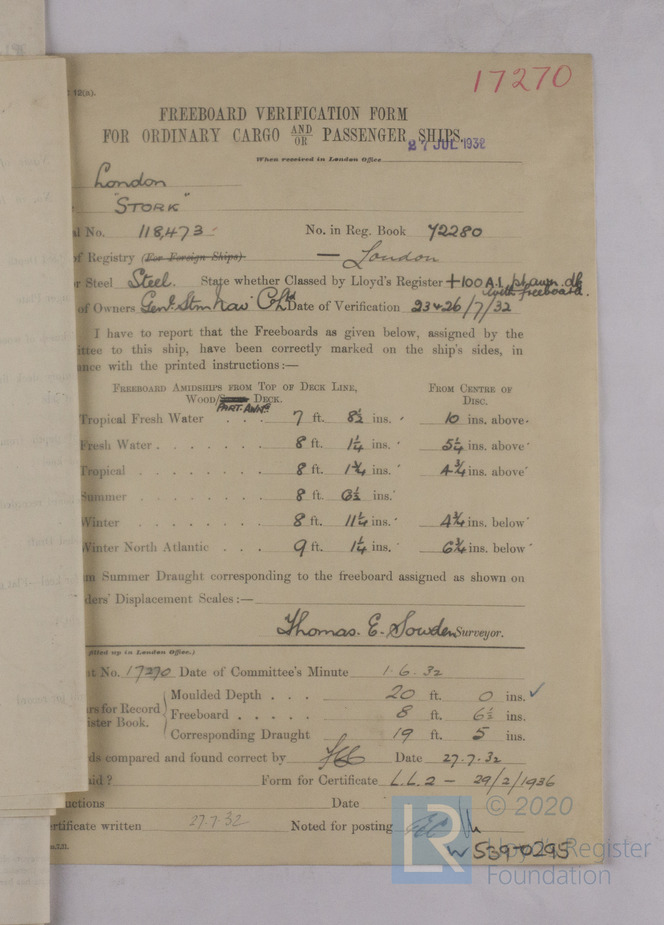 12(A).
17270
FREEBOARD VERIFICATION FORM
FOR ORDINARY CARGO AND/OR PASSENGER SHIPS.
27 JUL 1932
When received in London Office
London
"STORK"
l No. 118,473 No. in Reg. Book 72280
of Registry (For Foreign Ships) — London
r Steel Steel. State whether Classed by Lloyd's Register +100A.1
with freeboard.
of Owners Genl Stm Nav Co Ld Date of Verification 23 & 26/7/32
I have to report that the Freeboards as given below, assigned by the
ttee to this ship, have been correctly marked on the ship's sides, in
nce with the printed instructions:—
FREEBOARD AMIDSHIPS FROM TOP OF DECK LINE, FROM CENTRE OF
WOOD/ DECK. DISC.
Tropical Fresh Water . . . 7 ft. 8½ ins. 10 ins. above
Fresh Water . . . . . . . 8 ft. 1¼ ins. 5¼ ins. above
Tropical . . . . . . . 8 ft. 1¾ ins. 4¾ ins. above
Summer . . . . . . . 8 ft. 6½ ins.
Winter . . . . . . . 8 ft. 11¼ ins. 4¾ ins. below
Winter North Atlantic . . . 9 ft. 1¼ ins. 6¾ ins. below
m Summer Draught corresponding to the freeboard assigned as shown on
ders' Displacement Scales:—
Thomas. E. Sowden Surveyor.
filled up in London Office.)
t No. 17270 Date of Committee's Minute 1.6.32
Moulded Depth . . . 20 ft. 0 ins. ✓
rs for Record
Freeboard . . . . . 8 ft. 6½ ins.
ister Book.
Corresponding Draught 19 ft. 5 ins.
ds compared and found correct by Date 27.7.32
aid? Form for Certificate L.L.2 — 29/2/1936
uctions Date
ertificate written 27.7.32 Noted for posting
© 2020
Lloyd's Register
Foundation
LR
W539-0295